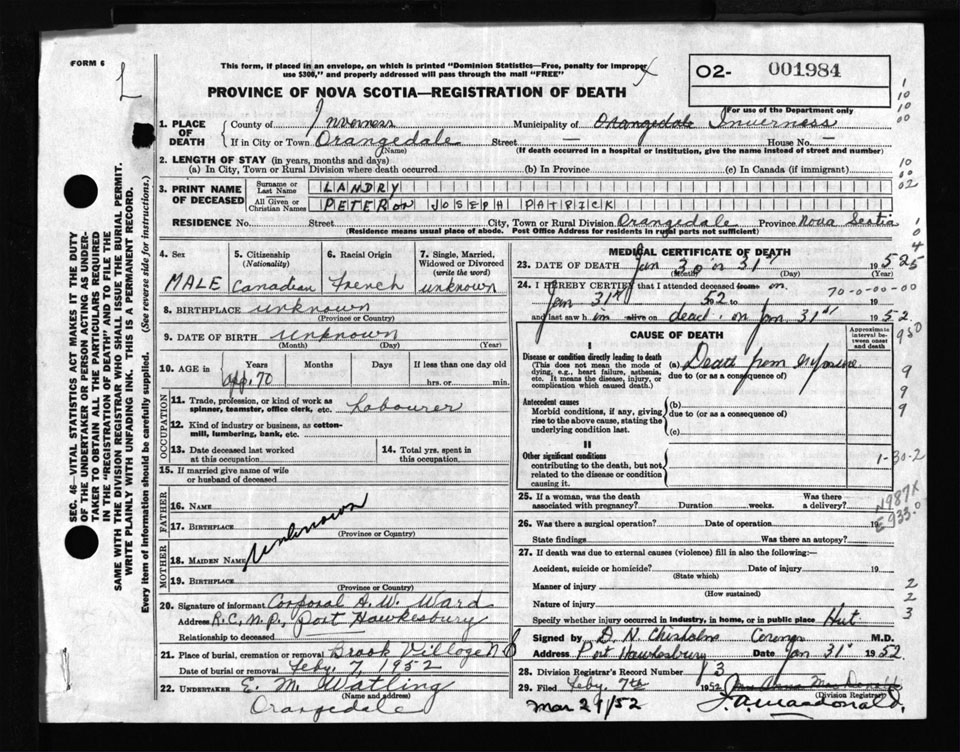 FORM 6
L
This form, if placed in an envelope, on which is printed "Dominion Statistics—Free, penalty for improper
use $300," and properly addressed will pass through the mail "FREE"
X
PROVINCE OF NOVA SCOTIA—REGISTRATION OF DEATH
O2- 001984
For use of the Department only
1. PLACE OF DEATH
County of Inverness Municipality of Orangedale Inverness
If in City or Town Orangedale Street — House No. —
(Name) (If death occurred in a hospital or institution, give the name instead of street and number)
2. LENGTH OF STAY (in years, months and days)
(a) In City, Town or Rural Division where death occurred (b) In Province (c) In Canada (if immigrant)
3. PRINT NAME OF DECEASED
Surname or Last Name LANDRY
All Given or Christian Names PETER or JOSEPH PATRICK
RESIDENCE No. Street City, Town or Rural Division Orangedale Province Nova Scotia
(Residence means usual place of abode. Post Office Address for residents in rural parts not sufficient)
4. Sex
MALE
5. Citizenship
(Nationality)
Canadian
6. Racial Origin
French
7. Single, Married,
Widowed or Divorced
(write the word)
unknown
8. BIRTHPLACE unknown
(Province or Country)
9. DATE OF BIRTH unknown
(Month) (Day) (Year)
10. AGE in
Years Months Days If less than one day old
app. 70 hrs. or min.
OCCUPATION
11. Trade, profession, or kind of work as
spinner, teamster, office clerk, etc. Labourer
12. Kind of industry or business, as cotton-
mill, lumbering, bank, etc.
13. Date deceased last worked
at this occupation
14. Total yrs. spent in
this occupation
15. If married give name of wife
or husband of deceased
FATHER
16. NAME
17. BIRTHPLACE
(Province or Country)
Unknown
MOTHER
18. MAIDEN NAME
19. BIRTHPLACE
(Province or Country)
20. Signature of informant Corporal A. W. Ward
Address R.C.M.P., Port Hawkesbury
Relationship to deceased
21. Place of burial, cremation or removal Brook Village NS
Date of burial or removal Feby. 7, 1952
22. UNDERTAKER E. M. Watling
(Name and address)
Orangedale
MEDICAL CERTIFICATE OF DEATH
23. DATE OF DEATH Jan 30 or 31st 1952
(Month) (Day) (Year)
24. I HEREBY CERTIFY that I attended deceased from on
70-0-00-00
Jan 31st 52 to 19
and last saw him alive on dead on Jan 31st 1952.
CAUSE OF DEATH
Approximate
interval be-
tween onset
and death
I
Disease or condition directly leading to death
(This does not mean the mode of
dying, e.g., heart failure, asthenia,
etc. It means the disease, injury, or
complication which caused death.)
(a) Death from
due to (or as a consequence of)
Antecedent causes
Morbid conditions, if any, giving
rise to the above cause, stating the
underlying condition last.
(b)
due to (or as a consequence of)
(c)
II
Other significant conditions
contributing to the death, but not
related to the disease or condition
causing it.
1-30-2
25. If a woman, was the death
associated with pregnancy? Duration weeks.
Was there
a delivery?
26. Was there a surgical operation? Date of operation 19
State findings Was there an autopsy?
N987X
E933.0
27. If death was due to external causes (violence) fill in also the following:—
Accident, suicide or homicide? Date of injury 19
(State which)
Manner of injury
(How sustained)
Nature of injury
Specify whether injury occurred in industry, in home, or in public place Hut
Signed by D. N. Chisholm Coroner M.D.
Address Port Hawkesbury Date Jan 31st 1952.
28. Division Registrar's Record Number 3
29. Filed Feby. 7th 1952
(Division Registrar)
Mar 29/52 J.A. Macdonald.
SEC. 46—VITAL STATISTICS ACT MAKES IT THE DUTY
OF THE UNDERTAKER OR PERSON ACTING AS UNDER-
TAKER TO OBTAIN ALL THE PARTICULARS REQUIRED
IN THE "REGISTRATION OF DEATH" AND TO FILE THE
SAME WITH THE DIVISION REGISTRAR WHO SHALL ISSUE THE BURIAL PERMIT.
WRITE PLAINLY WITH UNFADING INK. THIS IS A PERMANENT RECORD.
Every item of information should be carefully supplied. (See reverse side for instructions.)